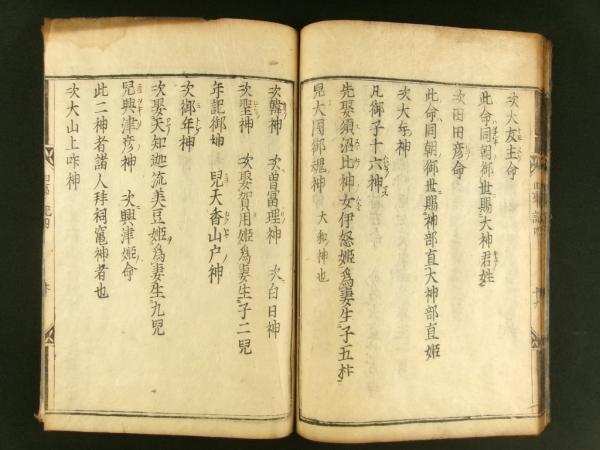 次大友主命
此命同朝御世賜大神君姓
次田田彦命
此命同朝御世賜神部直大神部直姫
次大年神
凡御子十六神
先娶須沼比神女伊怒姫為妻生子五柱
児大国御魂神 大和神也
次韓神 次曽富理神 次白日神
次聖神 次娶賀用姫為妻生子二児
年記御姉 児天香山戸神
次御年神
次娶天知迦流美豆姫為妻生九児
児興津彦神 次興津姫命
此二神者諸人拝祠竃神者也
次大山上咋神